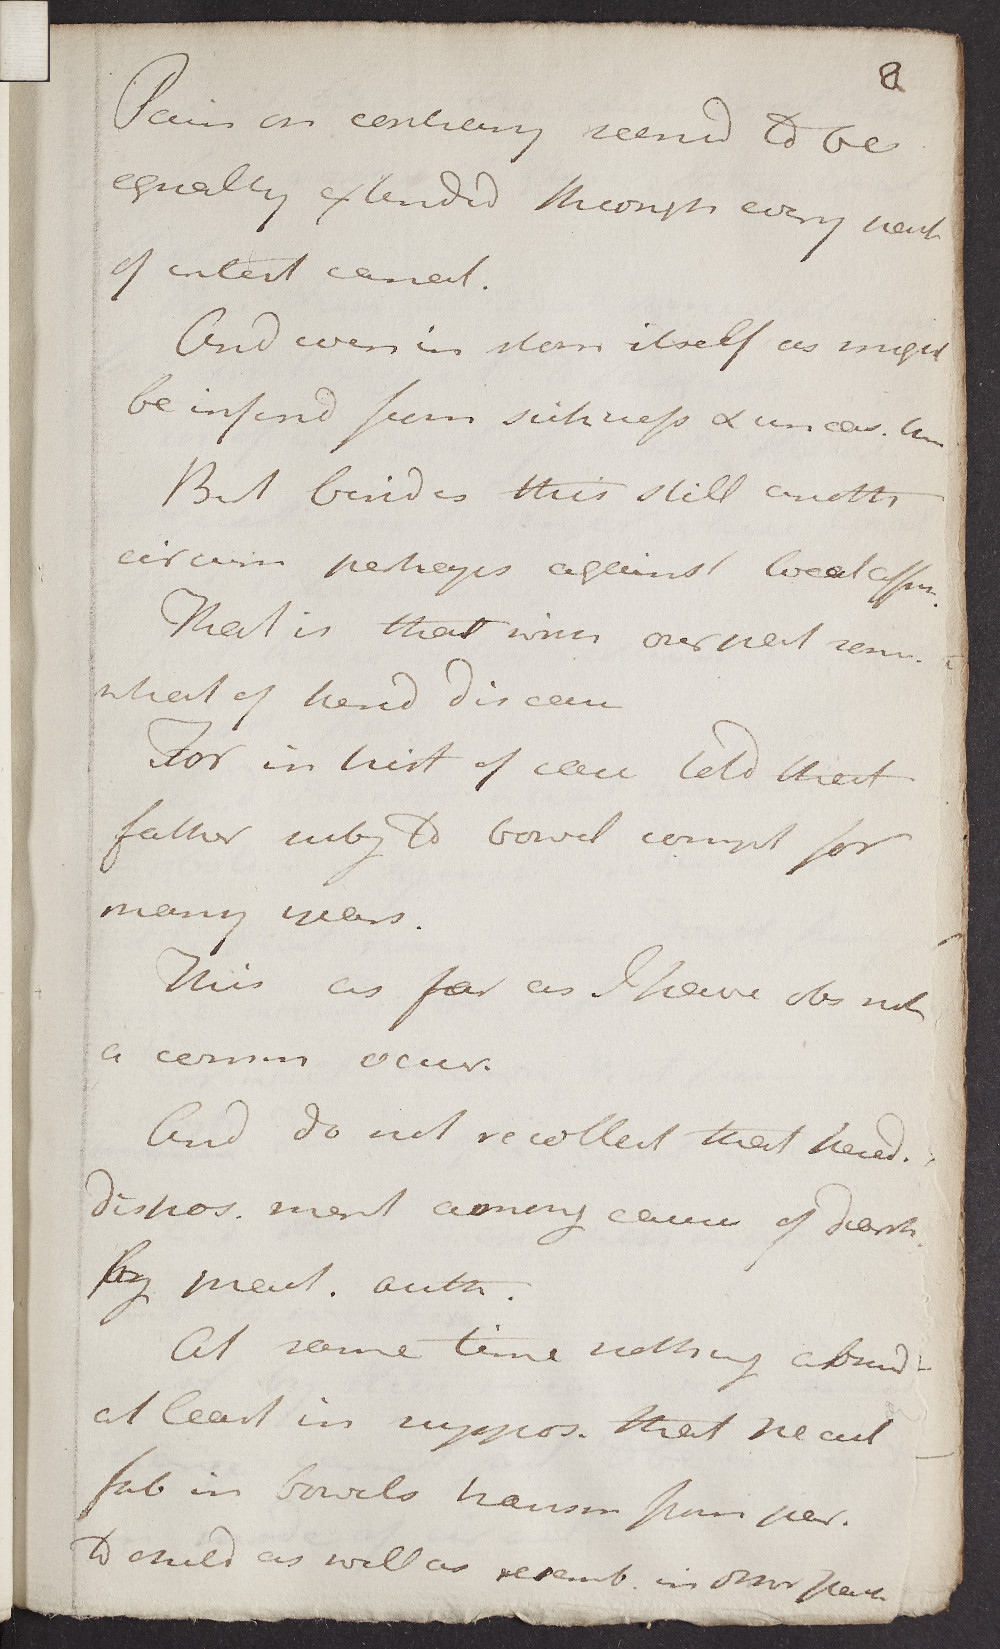 8
Pain on contrary seemd to be
equally extended through every part
of intest canal.
And even in stom itself as might
be inferd from sickness & uneas.
But besides this still anoth
circum perhaps against local affn.
That is that in our pat somewhat
what of hered disease
For in hist of case told that
father subj to bowel compt for
many years.
This as far as I have obs not
a comm occur.
And do not recollect that hered.
dispos. ment among causes of diarrh.
by pract. auth.
At same time nothing absurd
at least in suppos. that pecul
fab in bowels transm from par.
to child as well as resemb. in other parts